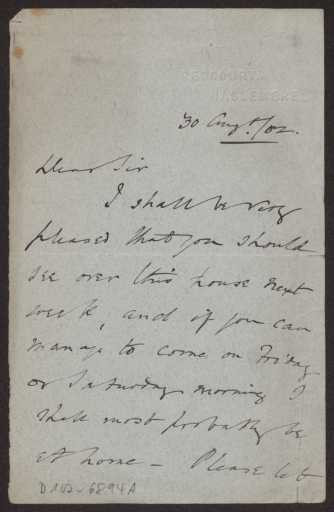 REDCOURT,
HASLEMERE.
30 Augt./02.
Dear Sir
I shall be very
pleased that you should
see over this house next
week, and if you can
manage to come on Friday
or Saturday morning I
shall most probably be
at home – Please let
D102-6894A